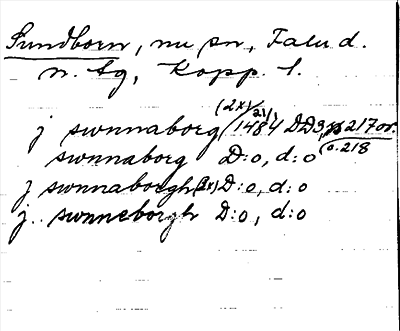 Sundborn, nu sn, Falu d.
n. tg, Kopp. l.
(2x) 21/1
j swnnaborg (1484 DD3, s 217 or.
swnnaborg D:o, d:o (o. 218
j swnnaborgh (2x) D:o, d:o
j. swnneborgh D:o, d:o